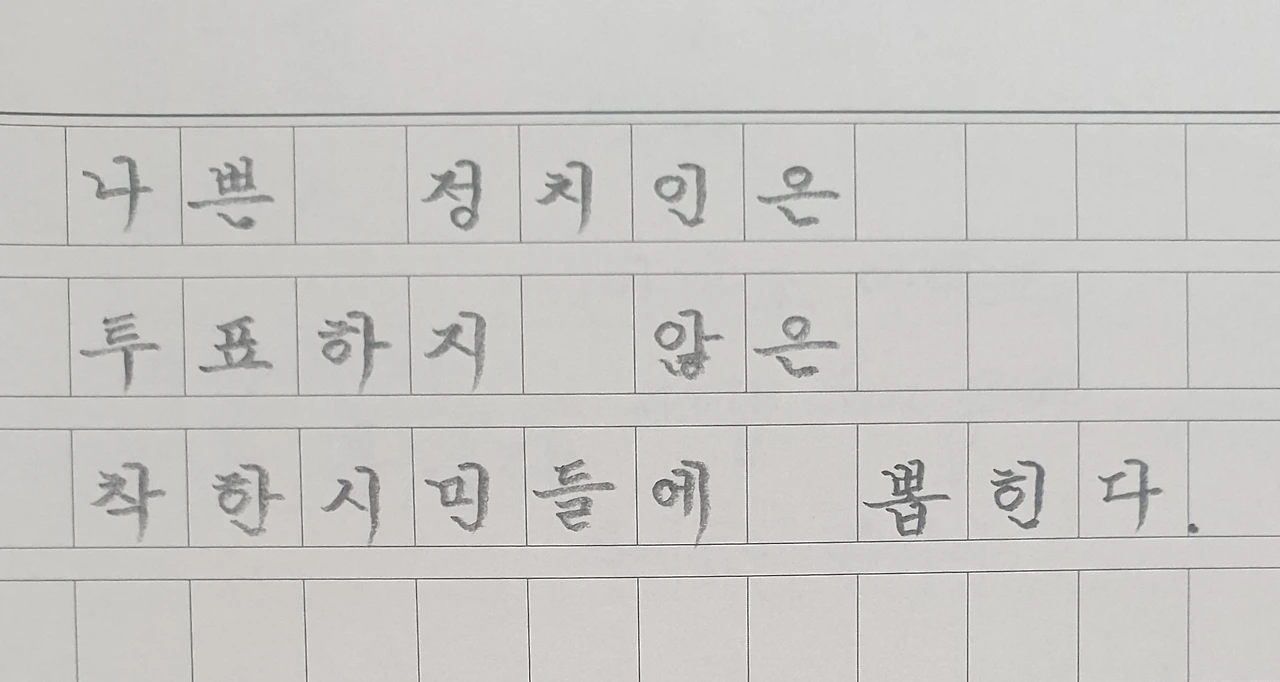 나쁜 정치인은
투표하지 않은
착한시민들에 뽑힌다.